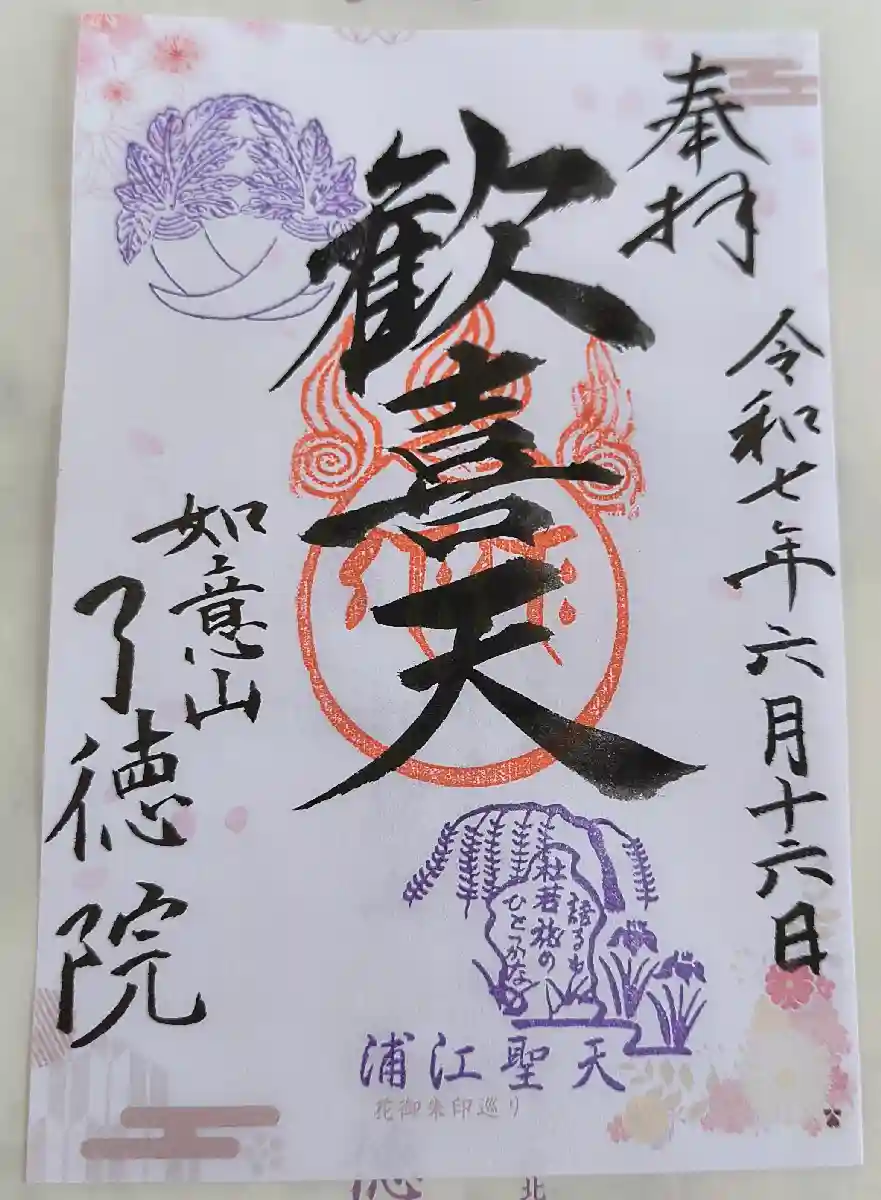 奉拝
令和七年六月十六日
歓喜天
如意山
了徳院
杜若
語るも旅の
ひとつかな
浦江聖天
花御朱印巡り
北